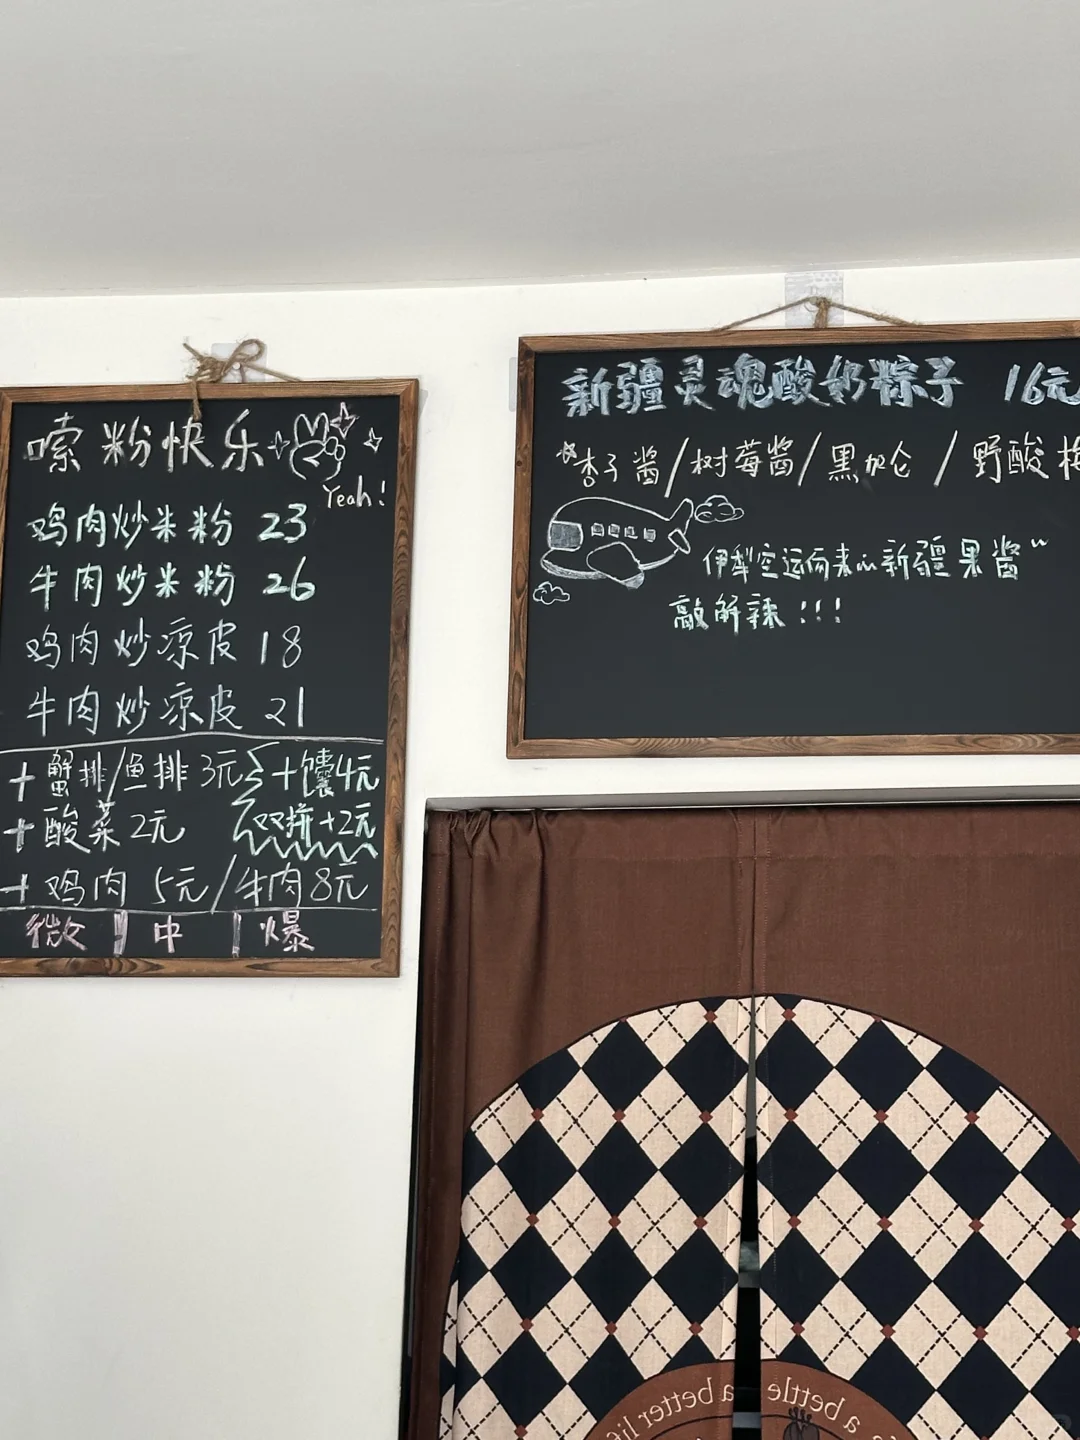 嗦粉快乐
Yeah!
鸡肉炒米粉 23
牛肉炒米粉 26
鸡肉炒凉皮 18
牛肉炒凉皮 21
+蟹排/鱼排 3元 +馕4元
+酸菜 2元 双拼+2元
+鸡肉 5元/牛肉8元
微 | 中 | 爆
新疆灵魂酸奶粽子 16元
杏子酱/树莓酱/黑加仑/野酸梅
伊犁空运而来的新疆果酱
敲解辣!!!
a better
a bettle